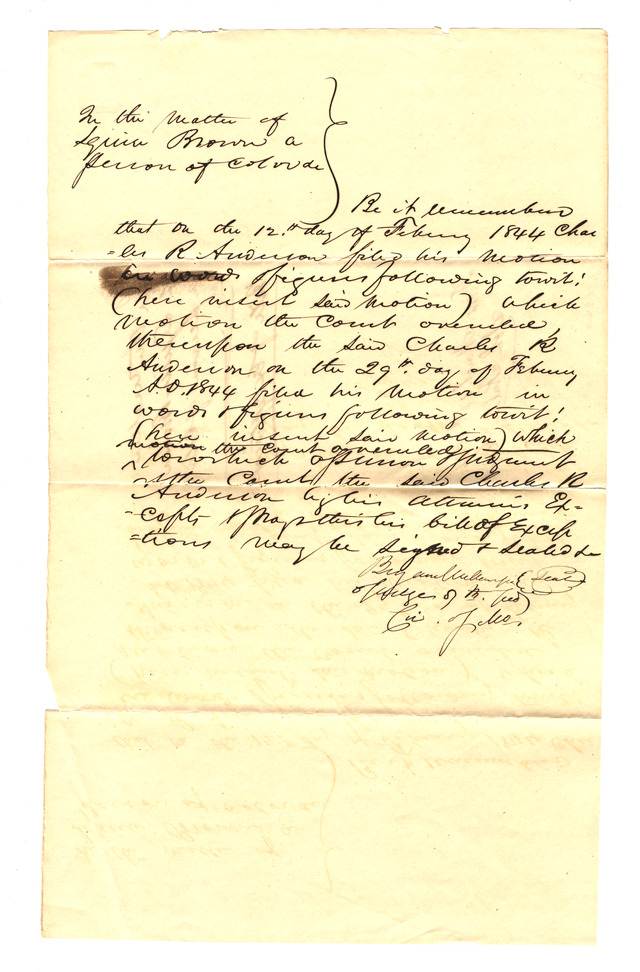 In the matter of
Squire Brown a
person of Color &c
Be it remembered
that on the 12th day of Febuary 1844 Char
=les R Anderson filed his motion
in words & figures following towit!
(here insert said motion) which
motion the Court overruled,
thereupon the said Charles R
Anderson on the 29th day of Febuary
A.D. 1844 filed his motion in
words & figures following towit!
(here insert said motion) which
motion the Court overruled
to which opinion & Judgment
of the Court the said Charles R
Anderson by his attornies Ex-
=cepts & prays this his bill of Excep
=tions may be signed & sealed &c
(Seal)
Judge of
Cir. of Mo.